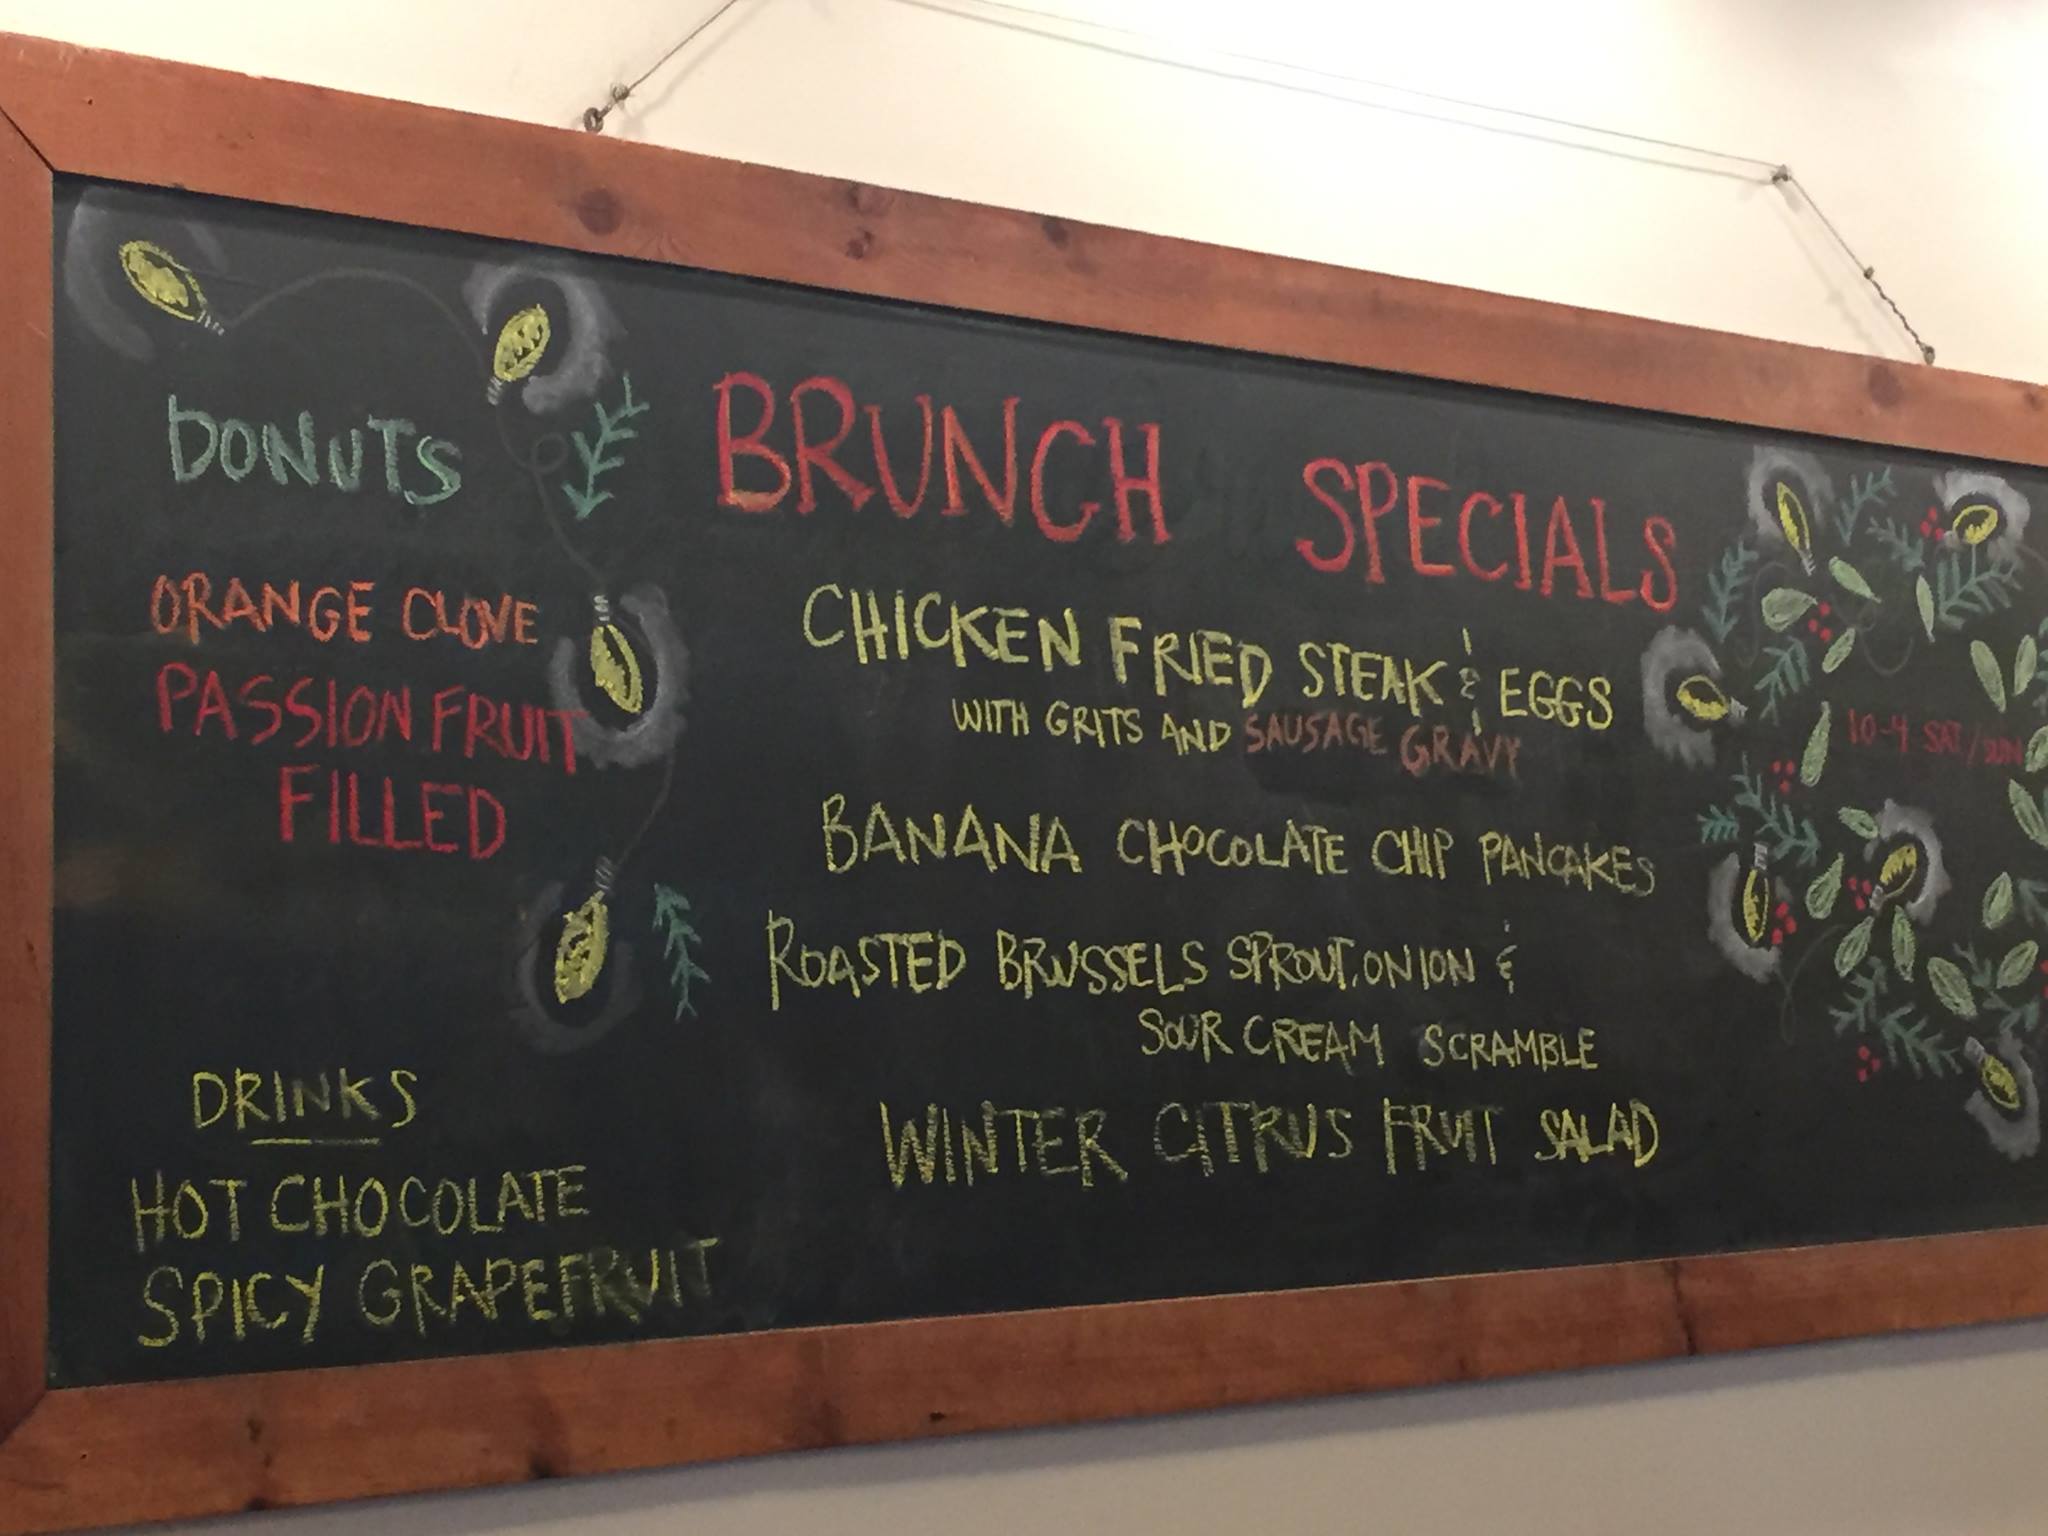 DONUTS
ORANGE CLOVE
PASSION FRUIT
FILLED
DRINKS
HOT CHOCOLATE
SPICY GRAPEFRUIT
BRUNCH SPECIALS
CHICKEN FRIED STEAK & EGGS
WITH GRITS AND SAUSAGE GRAVY
BANANA CHOCOLATE CHIP PANCAKES
ROASTED BRUSSELS SPROUT, ONION &
SOUR CREAM SCRAMBLE
WINTER CITRUS FRUIT SALAD
10-4 SAT/SUN